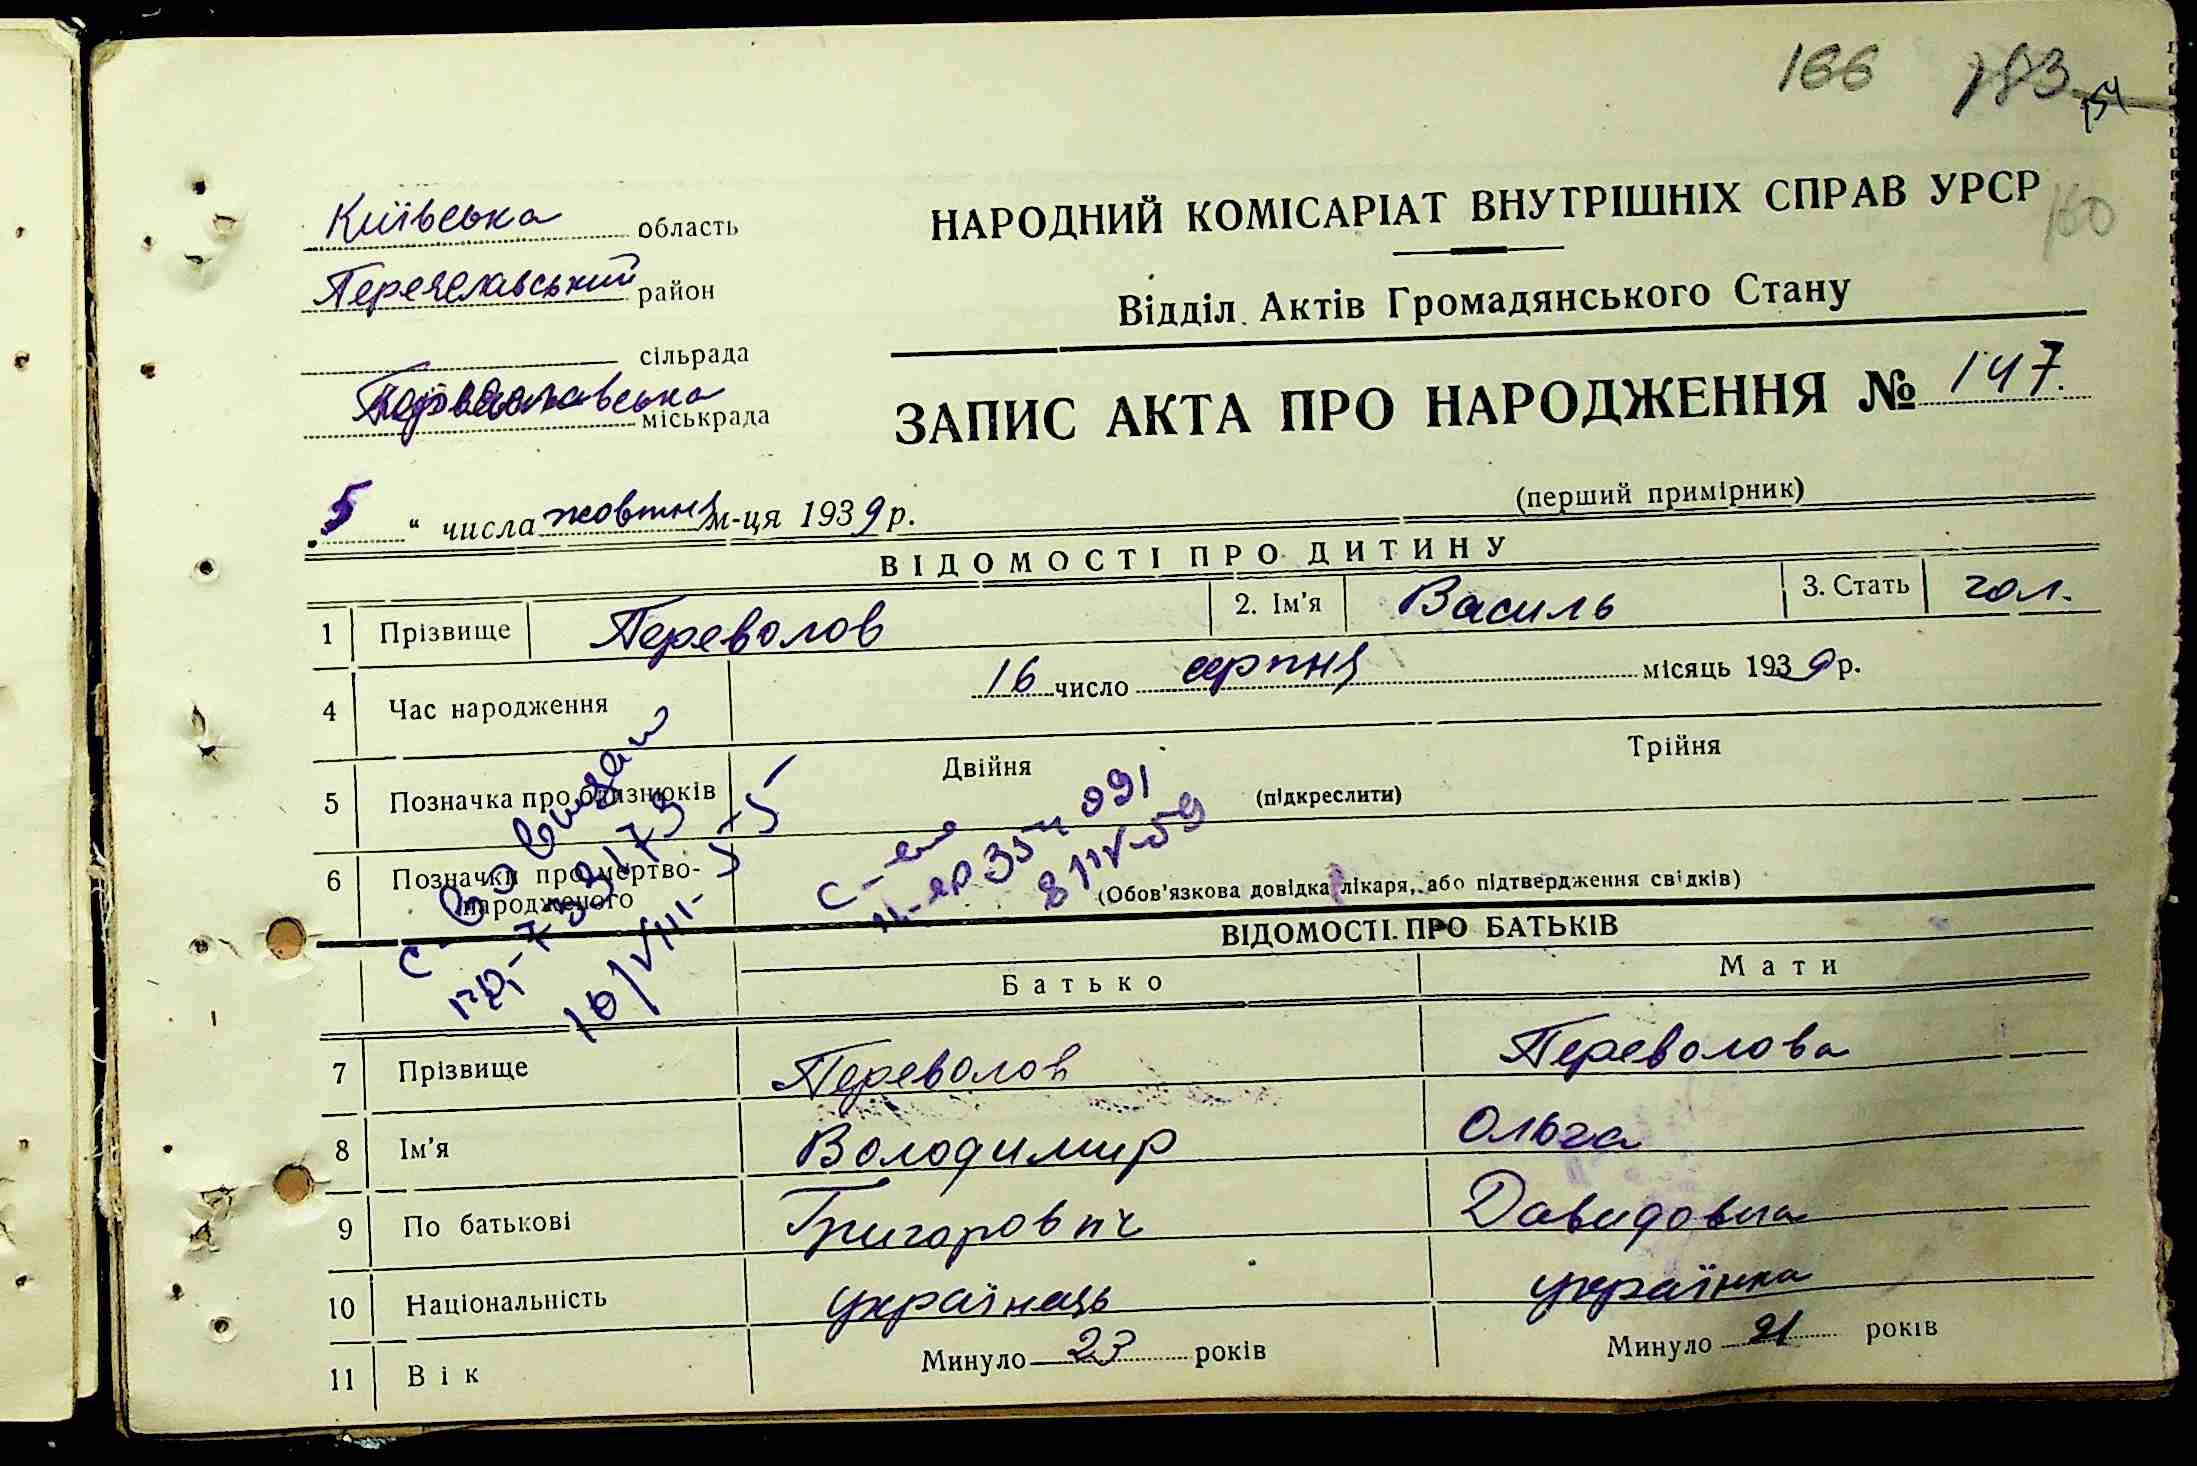 166 183 154
НАРОДНИЙ КОМІСАРІАТ ВНУТРІШНІХ СПРАВ УРСР
160
Відділ Актів Громадянського Стану
Київська область
Переяславський район
сільрада
міськрада
ЗАПИС АКТА ПРО НАРОДЖЕННЯ № 147.
(перший примірник)
„5“ числа жовтня м-ця 1939 р.
ВІДОМОСТІ ПРО ДИТИНУ
1 Прізвище Переволов 2. Ім'я Василь 3. Стать чол.
4 Час народження 16 число серпня місяць 1939 р.
5 Позначка про близнюків Двійня (підкреслити) Трійня
6 Позначки про мертвонародженого (Обов'язкова довідка лікаря, або підтвердження свідків)
ВІДОМОСТІ ПРО БАТЬКІВ
Батько Мати
7 Прізвище Переволов Переволова
8 Ім'я Володимир Ольга
9 По батькові Григорович Давидовна
10 Національність українець українка
11 Вік Минуло 23 років Минуло 21 років